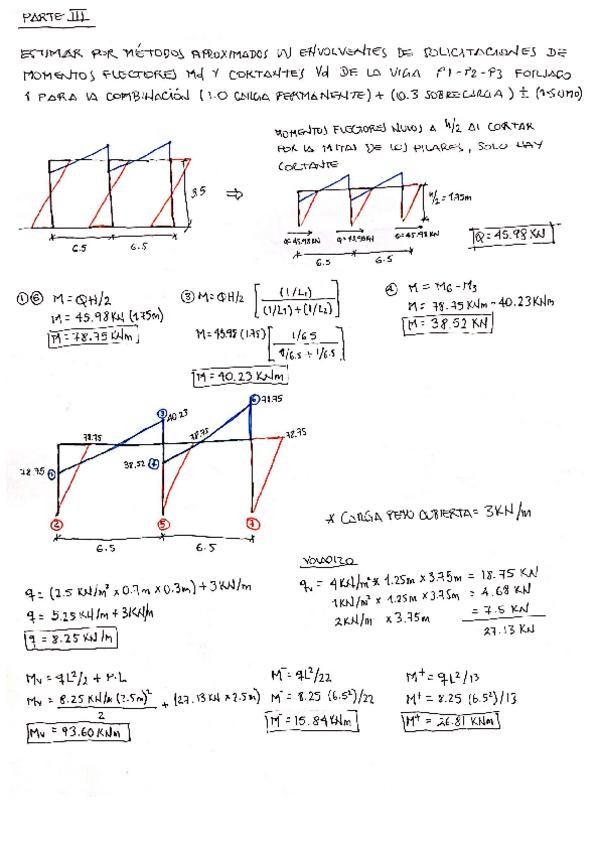 PARTE III
ESTIMAR POR MÉTODOS APROXIMADOS ENVOLVENTES DE SOLICITACIONES DE
MOMENTOS FLECTORES Md Y CORTANTES Vd DE LA VIGA P1-P2-P3 FORJADO
1 PARA LA COMBINACIÓN (1.0 CARGA PERMANENTE) + (0.3 SOBRECARGA) ± (1 SISMO)
MOMENTOS FLECTORES NULOS A h/2 AL CORTAR
POR LA MITAD DE LOS PILARES, SOLO HAY
CORTANTE
3.5
⇒
h/2 = 1.75m
Q=45.98KN Q=45.98KN Q=45.98KN
6.5 6.5
6.5 6.5
Q=45.98 KN
① ⑥ M = QH/2
M = 45.98KN (1.75m)
M = 78.75 KNm
③ M = QH/2 [(1/L1) / (1/L1)+(1/L2)]
M = 45.98 (1.75) [1/6.5 / 1/6.5 + 1/6.5]
M = 40.23 KNm
④ M = M6 - M3
M = 78.75 KNm - 40.23KNm
M = 38.52 KN
③ 40.23
⑥ 78.75
78.75 78.75 78.75
78.75 ① 38.52 ④
② ⑤ ⑦
6.5 6.5
* CARGA PESO CUBIERTA = 3KN/m
q = (25 KN/m³ x 0.7m x 0.3m) + 3KN/m
q = 5.25 KN/m + 3KN/m
q = 8.25 KN/m
VOLADIZO
qv = 4KN/m² x 1.25m x 3.75m = 18.75 KN
1KN/m² x 1.25m x 3.75m = 4.68 KN
2KN/m x 3.75m = 7.5 KN
27.13 KN
Mv = qL²/2 + P.L
Mv = 8.25 KN/m (2.5m)² / 2 + (27.13 KN x 2.5m)
Mv = 93.60 KNm
M⁻ = qL²/22
M⁻ = 8.25 (6.5²)/22
M⁻ = 15.84 KNm
M⁺ = qL²/13
M⁺ = 8.25 (6.5²)/13
M⁺ = 26.81 KNm